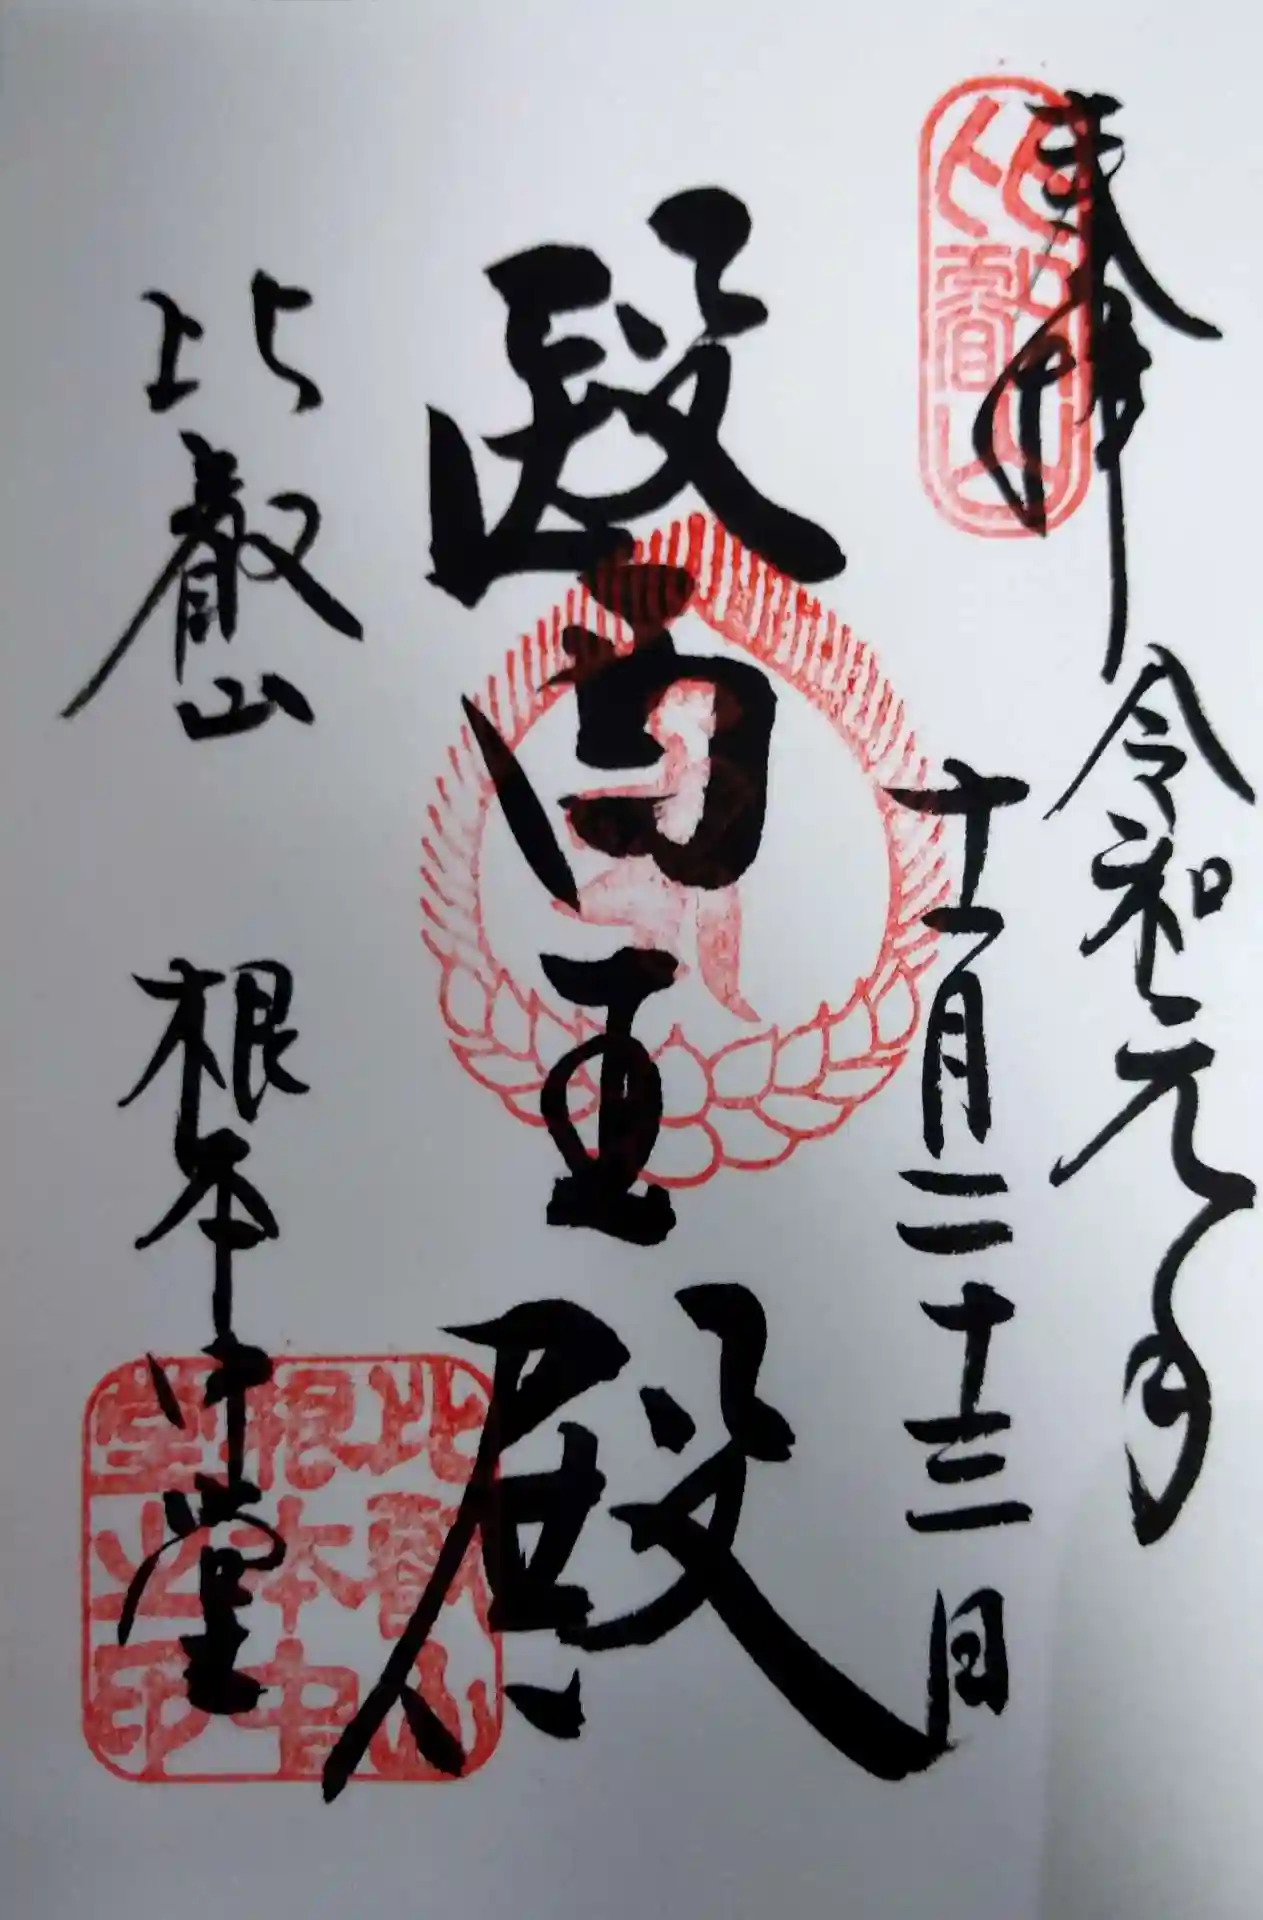 奉拝
令和元年
十一月二十三日
醫王殿
比叡山
根本中堂
比叡山
比叡山
根本中
堂之印